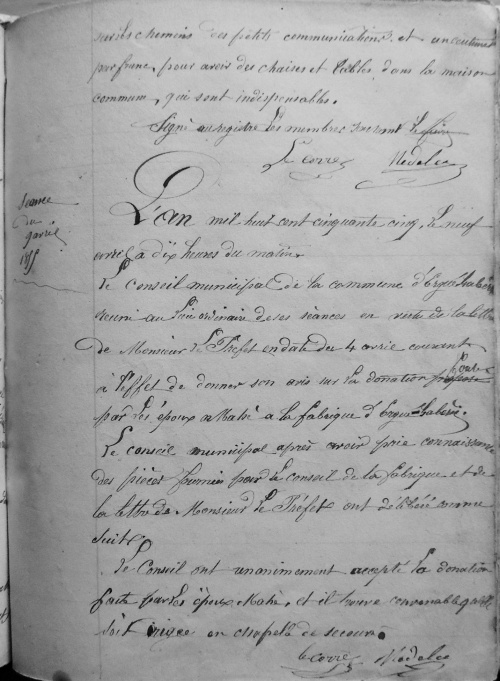 sur les chemins des petites communications et un centime
par franc, pour avoir des chaises et tables dans la maison
commun, qui sont indispensables.
Signé au registre les membres
Le Corre Nédelec
Séance
du
9 avril
1855
L'an mil huit cent cinquante cinq, le neuf
avril a dix heures du matin
Le Conseil municipal de la commune d'Ergué-Gabéric
réuni au lieu ordinaire de ses séances en suite de la lettre
de Monsieur le Préfet en date du 4 avril courant
à l'effet de donner son avis sur la donation faite
par les époux Mahé a la fabrique d'Ergué-Gabéric.
Le conseil municipal après avoir prie connaissance
des pièces fournies par le conseil de la fabrique et de
la lettre de Monsieur le Préfet ont délibéré comme
suit
Le Conseil ont unanimement accepté la donation
faite par les époux Mahé, et il trouve convenable qu'elle
soit érigée en chapelle de secours.
Le Corre Nédelec